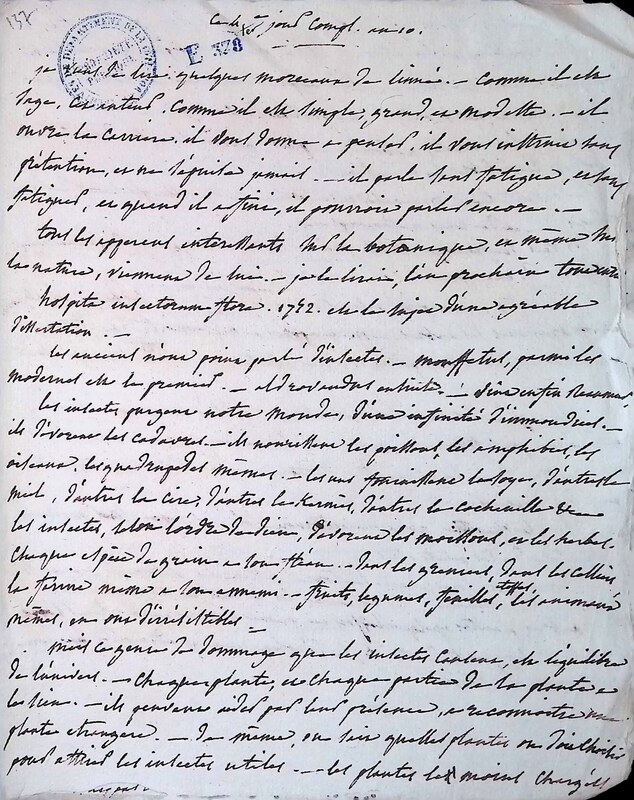 137
E 378
Ce 4.e jour compl. an 10.
je viens de lire quelques morceaux de linné. - comme il est
sage, et comme il est simple, grand, et modeste. - il
ouvre la carriere, il vous donne a penser, il vous instruit sans
prétention, et ne s'épuise jamais. - il parle sans fatigue, et sans
fatiguer, et quand il a fini, il pourroit parler encore. -
tous les apperçus interessants sur la botanique, et même sur
la nature, viennent de lui. - je le lirai, l'an prochain tout
hospita insectorum flora. 1752. est le sujet d'une agréable
dissertation. -
les anciens n'ont point parlé d'insectes. - mouffetus, parmi les
modernes est le premier. - aldrovandus ensuite. - vint enfin Reaumur
les insectes purgent notre monde, d'une infinité d'immondices. -
ils dévorent les cadavres. - ils nourrissent les poissons, les amphibies, les
oiseaux, les quadrupedes mêmes. - les uns fournissent la soye, d'autres le
miel, d'autres la cire, d'autres le Kermès, d'autres la cochenille &c
les insectes, selon l'ordre de dieu, dévorent les moissons, et les herbes.
chaque espèce de grain a son fléau. - dans les greniers, dans les celliers
la farine même a son ennemi. - fruits, legumes, feuilles, étoffes, les animaux
mêmes, en ont d'irrésistibles -
mais ce genre de dommage que les insectes causent, est l'équilibre
de l'univers. - chaque plante, et chaque partie de la plante a
le sien. - ils peuvent aider par leur présence, a reconnoitre une
plante etrangere. - de même, on sait quelles plantes on doit choisir
pour attirer les insectes utiles. - les plantes les moins chargées